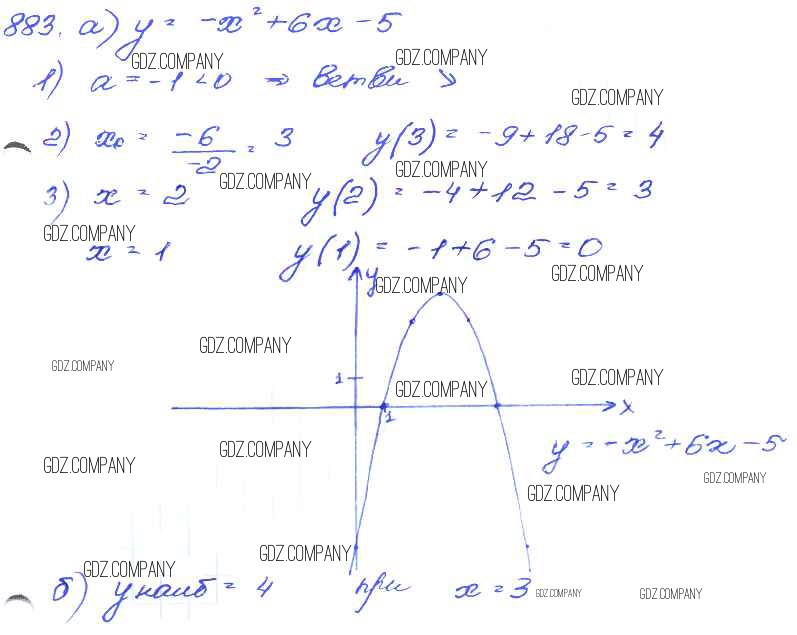 883. а) y = -x² + 6x - 5
GDZ.COMPANY GDZ.COMPANY
1) a = -1 < 0 ⇒ ветви ↘
GDZ.COMPANY
2) x₀ = -6/-2 = 3 y(3) = -9 + 18 - 5 = 4
GDZ.COMPANY GDZ.COMPANY
3) x = 2 y(2) = -4 + 12 - 5 = 3
GDZ.COMPANY
x = 1 y(1) = -1 + 6 - 5 = 0
GDZ.COMPANY
y GDZ.COMPANY
GDZ.COMPANY
GDZ.COMPANY
1 GDZ.COMPANY GDZ.COMPANY
1 x
y = -x² + 6x - 5
GDZ.COMPANY GDZ.COMPANY
GDZ.COMPANY
GDZ.COMPANY
GDZ.COMPANY GDZ.COMPANY
б) y наиб = 4 при x = 3 GDZ.COMPANY GDZ.COMPANY